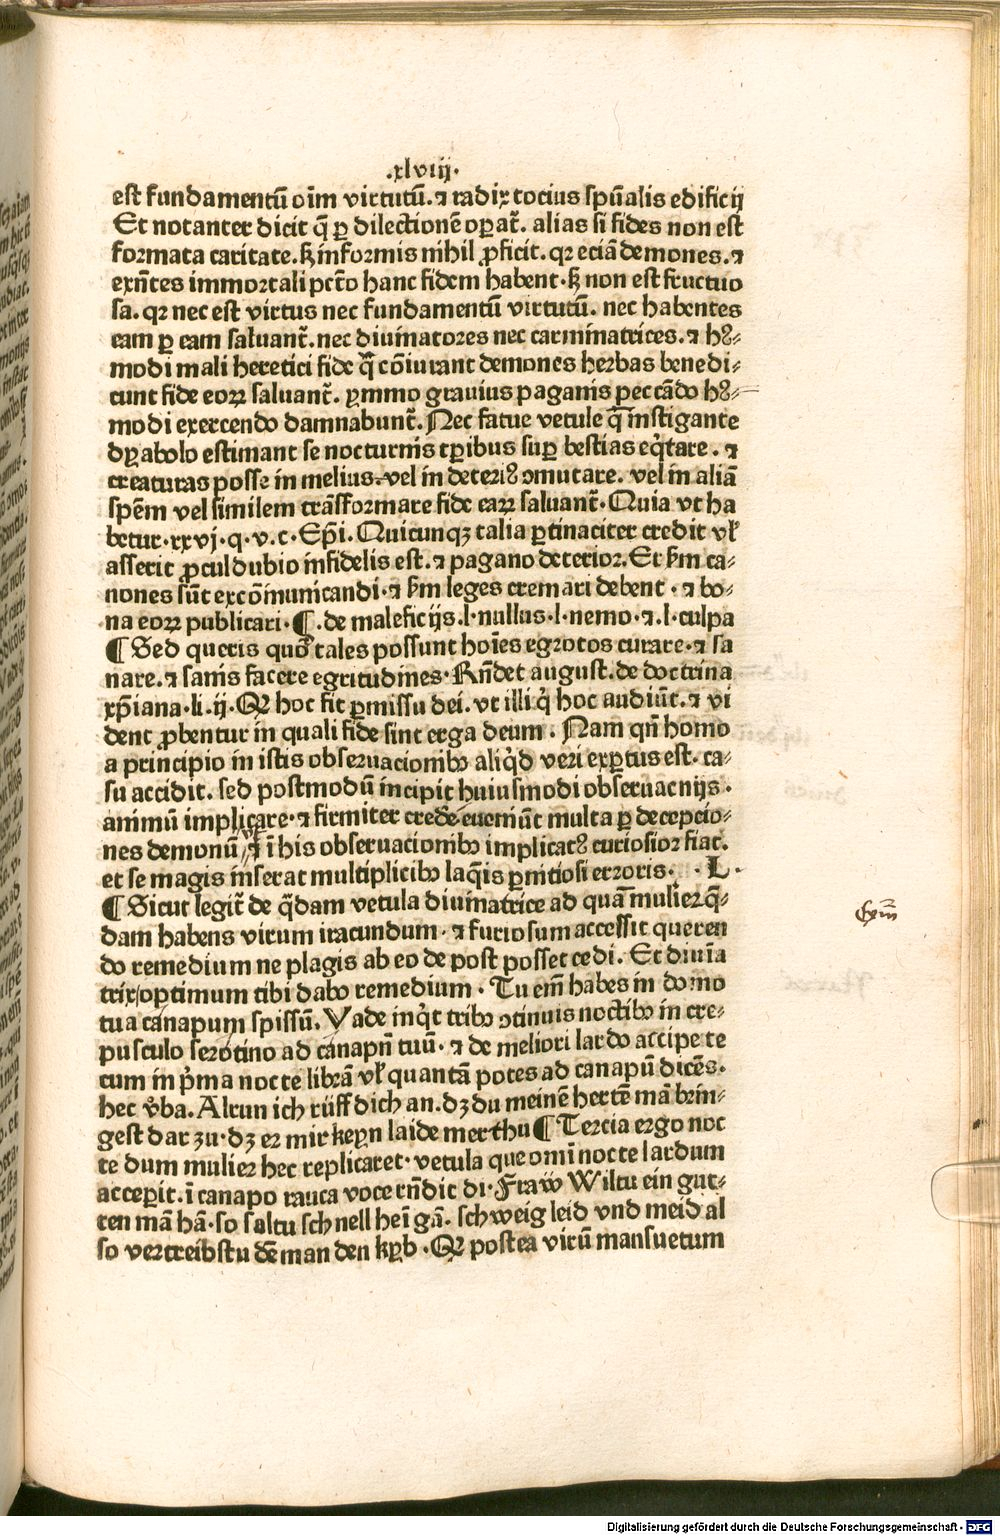 .xlviij.
est fundamentū oīm virtutū. ⁊ radix tocius spūalis edificij
Et notanter dicit q̄ ꝑ dilectionē oꝑat̄. alias si fides non est
formata caritate. sꝫ informis nihil ꝓficit. qꝛ eciā demones. ⁊
exn̄tes immortali pctō hanc fidem habent. sꝫ non est fructuo
sa. qꝛ nec est virtus nec fundamentū virtutū. nec habentes
eam ꝑ eam saluant̄. nec diuinatores nec carminatrices. ⁊ hꝰ⸗
modi mali heretici fide q̄ cōiurant demones herbas benedi⸗
cunt fide eoꝝ saluant̄. ymmo grauius paganis peccādo hꝰ⸗
modi exercendo damnabunt̄. Nec fatue vetule q̄ instigante
dyabolo estimant se nocturnis tꝑibus suꝑ bestias eq̇tare. ⁊
creaturas posse in melius. vel in deteriꝰ ꝯmutare. vel in aliā
spēm vel similem trāsformare fide eaꝝ saluant̄. Quia vt ha
betur. xxvj. q. v. c. Ep̄i. Quicunqꝫ talia ꝑtinaciter credit vł
asserit ꝓculdubio infidelis est. ⁊ pagano deterior. Et ẜm ca⸗
nones sūt excōmunicandi. ⁊ ẜm leges cremari debent. ⁊ bo⸗
na eoꝝ publicari. ¶. de maleficijs. l. nullus. l. nemo. ⁊. l. culpa
¶ Sed queris quō tales possunt hoīes egrotos curare. ⁊ sa
nare. ⁊ sanis facere egritudines. Rn̄det august. de doctrina
xp̄iana. li. ij. Qꝛ hoc fit ꝑmissu dei. vt illi q̇ hoc audiūt. ⁊ vi
dent ꝓbentur in quali fide sint erga deum. Nam qn̄ homo
a principio in istis obseruacionibꝫ aliq̇d veri exꝑtus est. ca⸗
su accidit. sed postmodū incipit huiusmodi obseruacnijs.
animū implicare. ⁊ firmiter credēͤ eueniūt multa ꝑ decepcio⸗
nes demonū vt ī his obseruacionibꝫ implicatꝰ curiosior fiat.
et se magis inserat multiplicibꝫ laq̄is ꝑnitiosi erroris. . L.
¶ Sicut legit̄ de q̄dam vetula diuinatrice ad quā mulier q̄⸗
dam habens virum iracundum. ⁊ furiosum accessit queren
do remedium ne plagis ab eo de post posset cedi. Et diuīa
trix/optimum tibi dabo remedium. Tu em̄ habes in domo
tua canapum spissū. Vade inq̇t tribꝫ ꝯtinuis noctibꝫ in cre⸗
pusculo serotino ad canapū tuū. ⁊ de meliori lardo accipe te
cum in pͥma nocte librā vł quantā potes ad canapū dicēs.
hec v̓ba. Alrun ich rüff dich an. dꝫ du meinē hertē mā brin⸗
gest dar zu. dꝫ er mir keyn laide mer thu ¶ Tercia ergo noc
te dum mulier hec replicaret. vetula que omī nocte lardum
acceꝑit. ī canapo rauca voce rn̄dit di. Fraw̄ Wiltu ein gut⸗
ten mā hā. so soltu schnell heī gā. schweig leid vnd meid al
so vertreibstu dē man den kyb. Qꝛ postea virū mansuetum
Exm̄
Digitalisierung gefördert durch die Deutsche Forschungsgemeinschaft - DFG